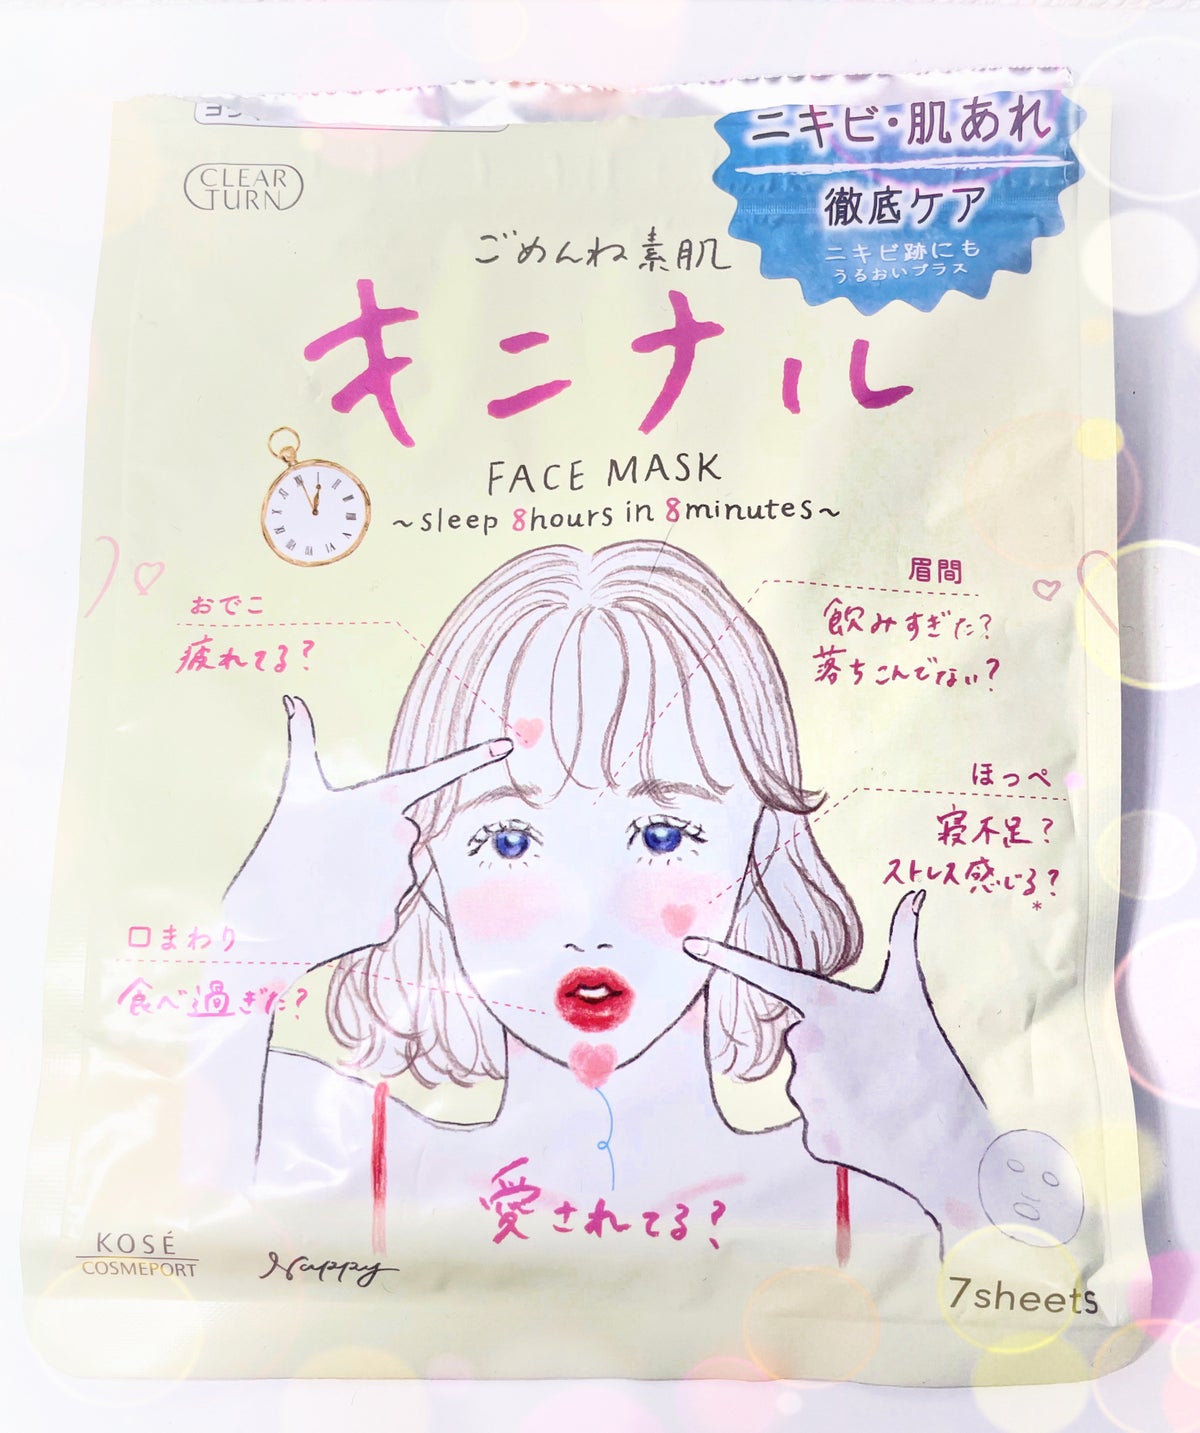 CLEAR
TURN
ニキビ・肌あれ
徹底ケア
ニキビ跡にも
うるおいプラス
ごめんね素肌
キニナル
FACE MASK
~sleep 8hours in 8minutes~
おでこ
疲れてる?
眉間
飲みすぎた?
落ちこんでない?
ほっぺ
寝不足?
ストレス感じる?
*
口まわり
食べ過ぎた?
愛されてる?
KOSÉ
COSMEPORT
Nappy
7sheets